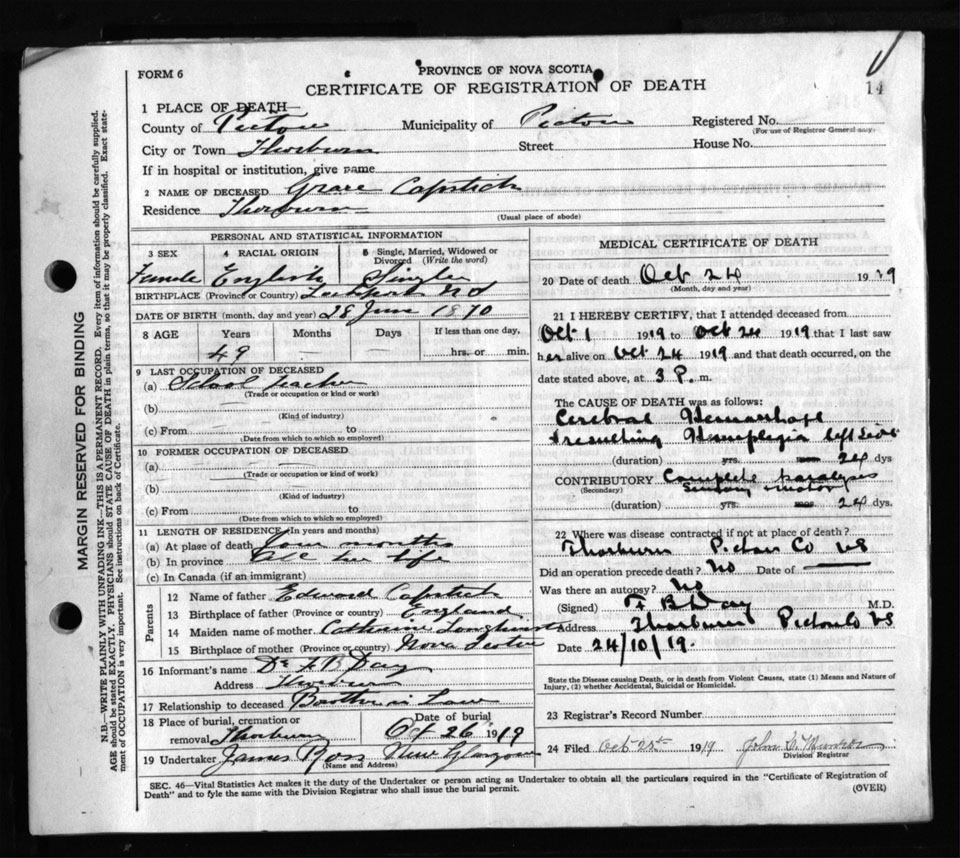 FORM 6
PROVINCE OF NOVA SCOTIA
CERTIFICATE OF REGISTRATION OF DEATH
14
1 PLACE OF DEATH—
County of Pictou Municipality of Pictou Registered No.
(For use of Registrar General only.
City or Town Thorburn Street House No.
If in hospital or institution, give name
2 NAME OF DECEASED Grace Capstick
Residence Thorburn
(Usual place of abode)
PERSONAL AND STATISTICAL INFORMATION
3 SEX 4 RACIAL ORIGIN 5 Single, Married, Widowed or Divorced (Write the word)
Female English Single
BIRTHPLACE (Province or Country) Lockport N S
DATE OF BIRTH (month, day and year) 28 June 1870
8 AGE Years Months Days If less than one day,
49 hrs. or min.
9 LAST OCCUPATION OF DECEASED
(a) School teacher
(Trade or occupation or kind or work)
(b)
(Kind of industry)
(c) From to
(Date from which to which so employed)
10 FORMER OCCUPATION OF DECEASED
(a)
(Trade or occupation or kind of work)
(b)
(Kind of industry)
(c) From to
(Date from which to which so employed)
11 LENGTH OF RESIDENCE (In years and months)
(a) At place of death four months
(b) In province All her life
(c) In Canada (if an immigrant)
Parents
12 Name of father Edward Capstick
13 Birthplace of father (Province or country) England
14 Maiden name of mother Catherine
15 Birthplace of mother (Province or country) Nova Scotia
16 Informant's name Dr F B Day
Address Thorburn
17 Relationship to deceased Brother in Law
18 Place of burial, cremation or Date of burial
removal Thorburn Oct 26 1919
19 Undertaker James Ross New Glasgow
(Name and Address)
MEDICAL CERTIFICATE OF DEATH
20 Date of death Oct 24 1919
(Month, day and year)
21 I HEREBY CERTIFY, that I attended deceased from
Oct 1 1919 to Oct 24 1919 that I last saw
her alive on Oct 24 1919 and that death occurred, on the
date stated above, at 3 P. m.
The CAUSE OF DEATH was as follows:
Cerebral Hemorrhage
resulting Hemiplegia left side
(duration) yrs. mos. 24 dys
CONTRIBUTORY Complete paralysis
(Secondary) sensory motor
(duration) yrs. mos. 24 dys.
22 Where was disease contracted if not at place of death?
Thorburn Pictou Co NS
Did an operation precede death? No Date of
Was there an autopsy? No
(Signed) F B Day M.D.
Address Thorburn Pictou Co NS
Date 24/10/19.
State the Disease causing Death, or in death from Violent Causes, state (1) Means and Nature of
Injury, (2) whether Accidental, Suicidal or Homicidal.
23 Registrar's Record Number
24 Filed Oct 25th 1919 John
Division Registrar
SEC. 46—Vital Statistics Act makes it the duty of the Undertaker or person acting as Undertaker to obtain all the particulars required in the "Certificate of Registration of
Death" and to fyle the same with the Division Registrar who shall issue the burial permit.
(OVER)
MARGIN RESERVED FOR BINDING
N.B.—WRITE PLAINLY WITH UNFADING INK—THIS IS A PERMANENT RECORD. Every item of information should be carefully supplied.
AGE should be stated EXACTLY. PHYSICIANS should STATE CAUSE OF DEATH in plain terms, so that it may be properly classified. Exact state-
ment of OCCUPATION is very important. See instructions on back of Certificate.